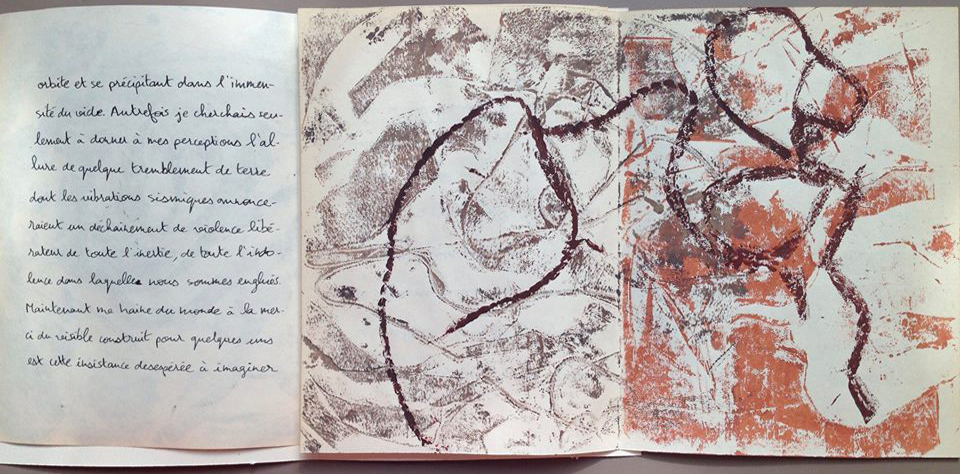 orbite et se précipitant dans l'immen-
sité du vide. Autrefois je cherchais seu-
lement à donner à mes perceptions l'al-
lure de quelque tremblement de terre
dont les vibrations sismiques annonce-
raient un déchaînement de violence libé-
rateur de toute l'inertie, de toute l'inso-
lence dans laquelle nous sommes englués.
Maintenant ma haine du monde à la mer-
ci du visible construit pour quelques uns
est cette insistance desespérée à imaginer